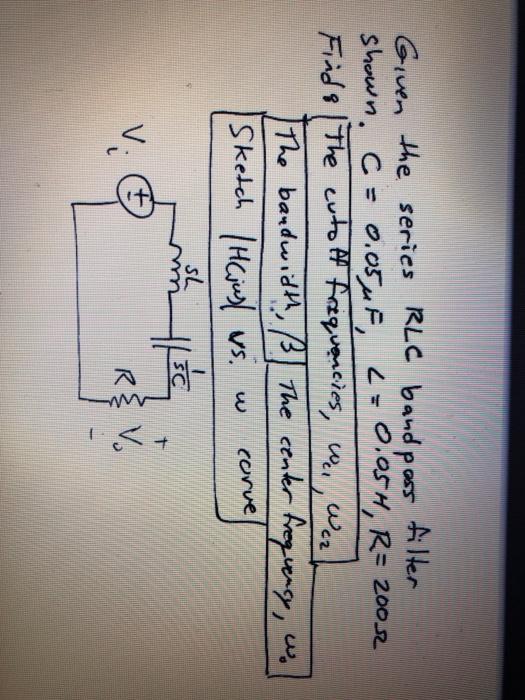 Given the series RLC bandpass filter
shown. C = 0.05 μF, L = 0.05H, R = 200Ω
Find: The cutoff frequencies, ωc1, ωc2
The bandwidth, β The center frequency, ω0
Sketch |H(jω)| vs. ω curve
sL
1/sC
Vi
R
+
Vo
-